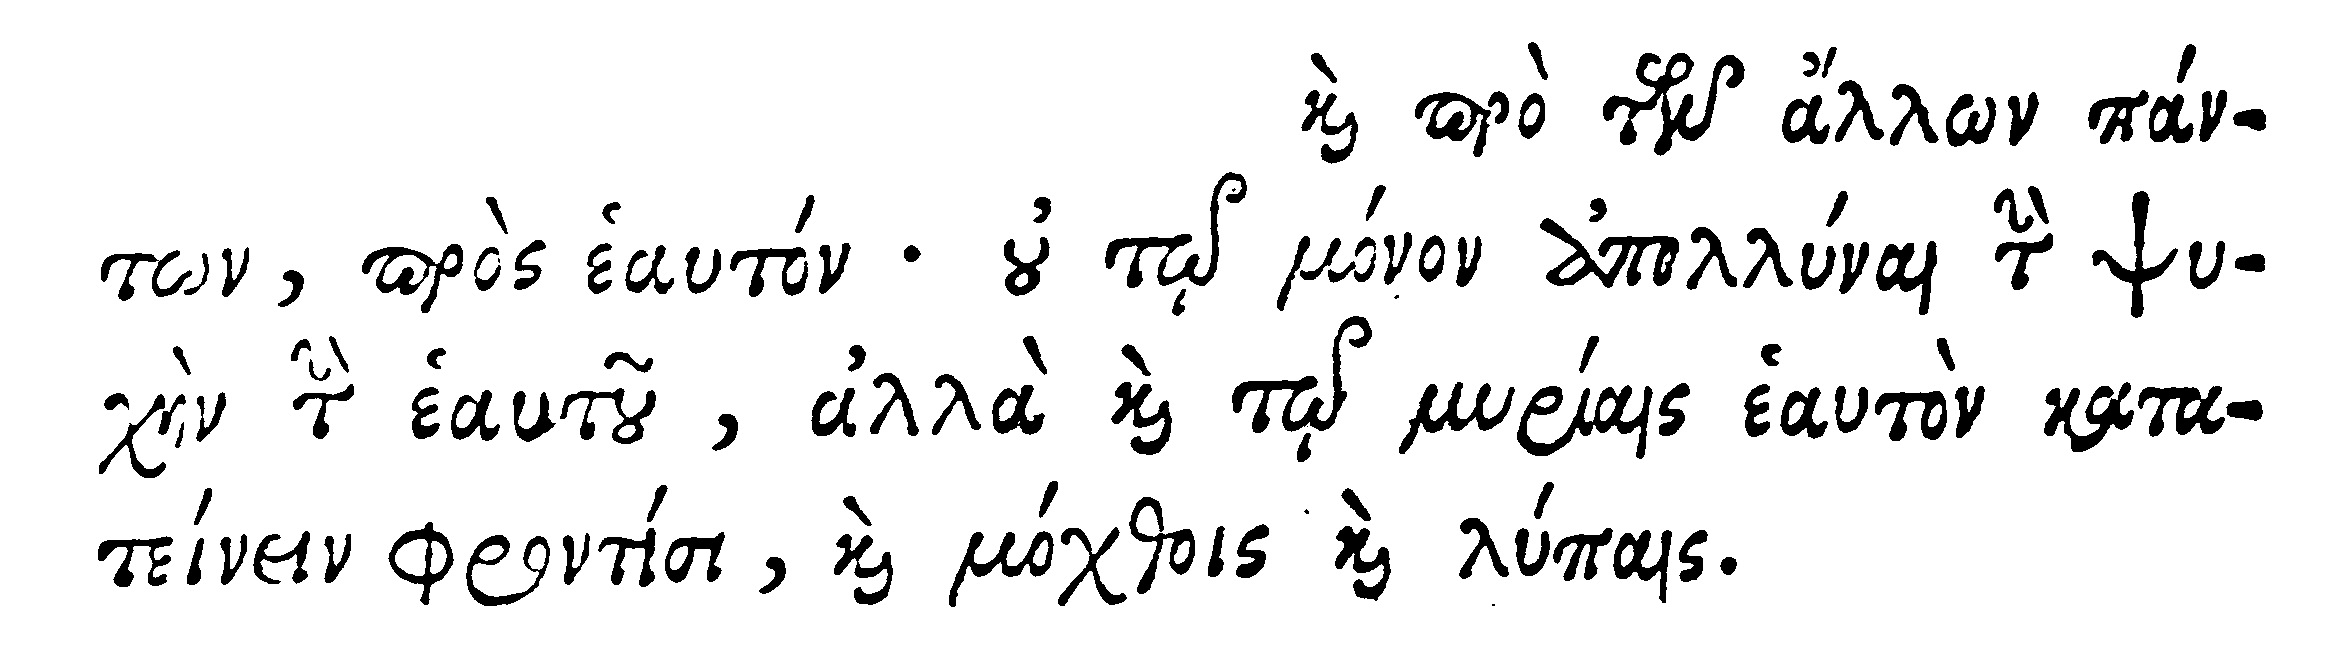 καὶ πρὸ τῶν ἄλλων πάν-
των, πρὸς ἑαυτόν· οὐ τῷ μόνον ἀπολλύναι τὴν ψυ-
χὴν τὴν ἑαυτοῦ, ἀλλὰ καὶ τῷ μυρίαις ἑαυτὸν κατα-
τείνειν φροντίσι, καὶ μόχθοις καὶ λύπαις.